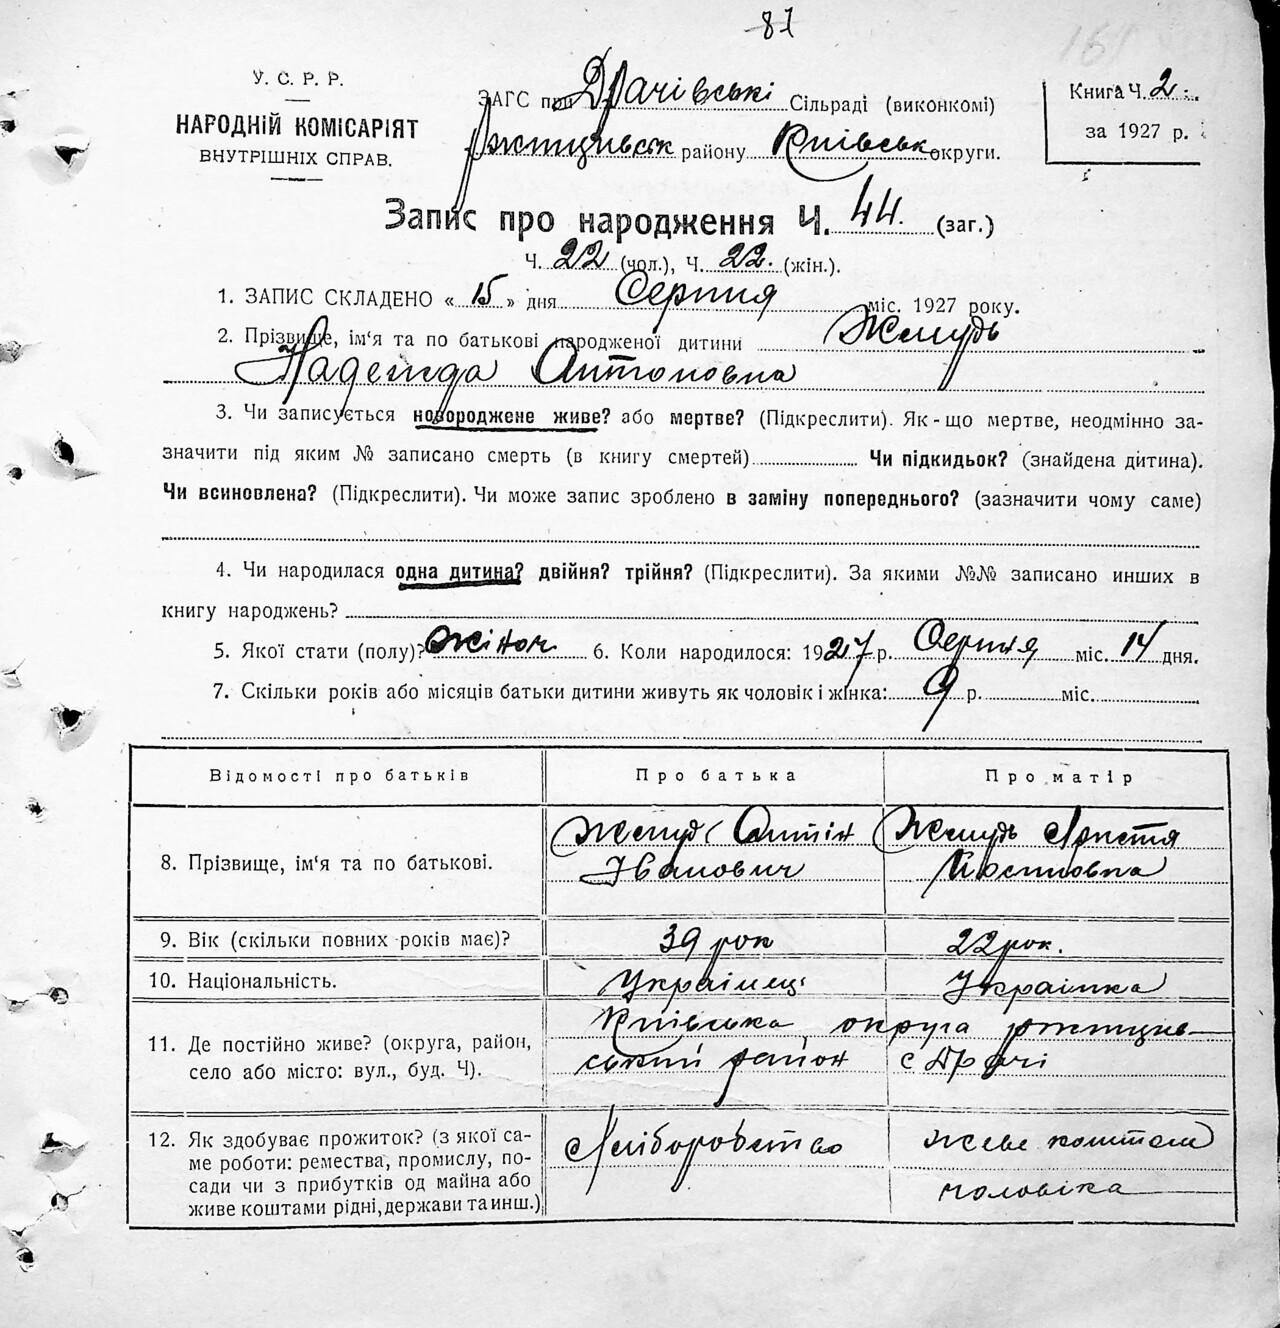 87
У. С. Р. Р.
НАРОДНІЙ КОМІСАРІЯТ
ВНУТРІШНІХ СПРАВ.
ЗАГС при Драчівські Сільраді (виконкомі)
ржищивськ району Київськ округи.
Книга Ч. 2
за 1927 р.
Запис про народження Ч. 44. (заг.)
Ч. 22 (чол.), Ч. 22. (жін.).
1. ЗАПИС СКЛАДЕНО « 15 » дня Серпня міс. 1927 року.
2. Прізвище, ім'я та по батькові народженої дитини Жмудь
Надежда Антоновна
3. Чи записується новороджене живе? або мертве? (Підкреслити). Як-що мертве, неодмінно за-
значити під яким № записано смерть (в книгу смертей) Чи підкидьок? (знайдена дитина).
Чи всиновлена? (Підкреслити). Чи може запис зроблено в заміну попереднього? (зазначити чому саме)
4. Чи народилася одна дитина? двійня? трійня? (Підкреслити). За якими №№ записано инших в
книгу народжень?
5. Якої стати (полу)? жіноч 6. Коли народилося: 1927 р. Серпня міс. 14 дня.
7. Скільки років або місяців батьки дитини живуть як чоловік і жінка: 9 р. міс.
Відомості про батьків Про батька Про матір
8. Прізвище, ім'я та по батькові.
Жмудь Антін
Іванович
Жмудь
9. Вік (скільки повних років має)? 39 рок 22 рок.
10. Національність. Українець Українка
11. Де постійно живе? (округа, район,
село або місто: вул., буд. Ч).
Київська округа ржищив-
ський район с Драчі
12. Як здобуває прожиток? (з якої са-
ме роботи: ремества, промислу, по-
сади чи з прибутків од майна або
живе коштами рідні, держави та инш.)
Хліборобство
живе коштом
чоловіка